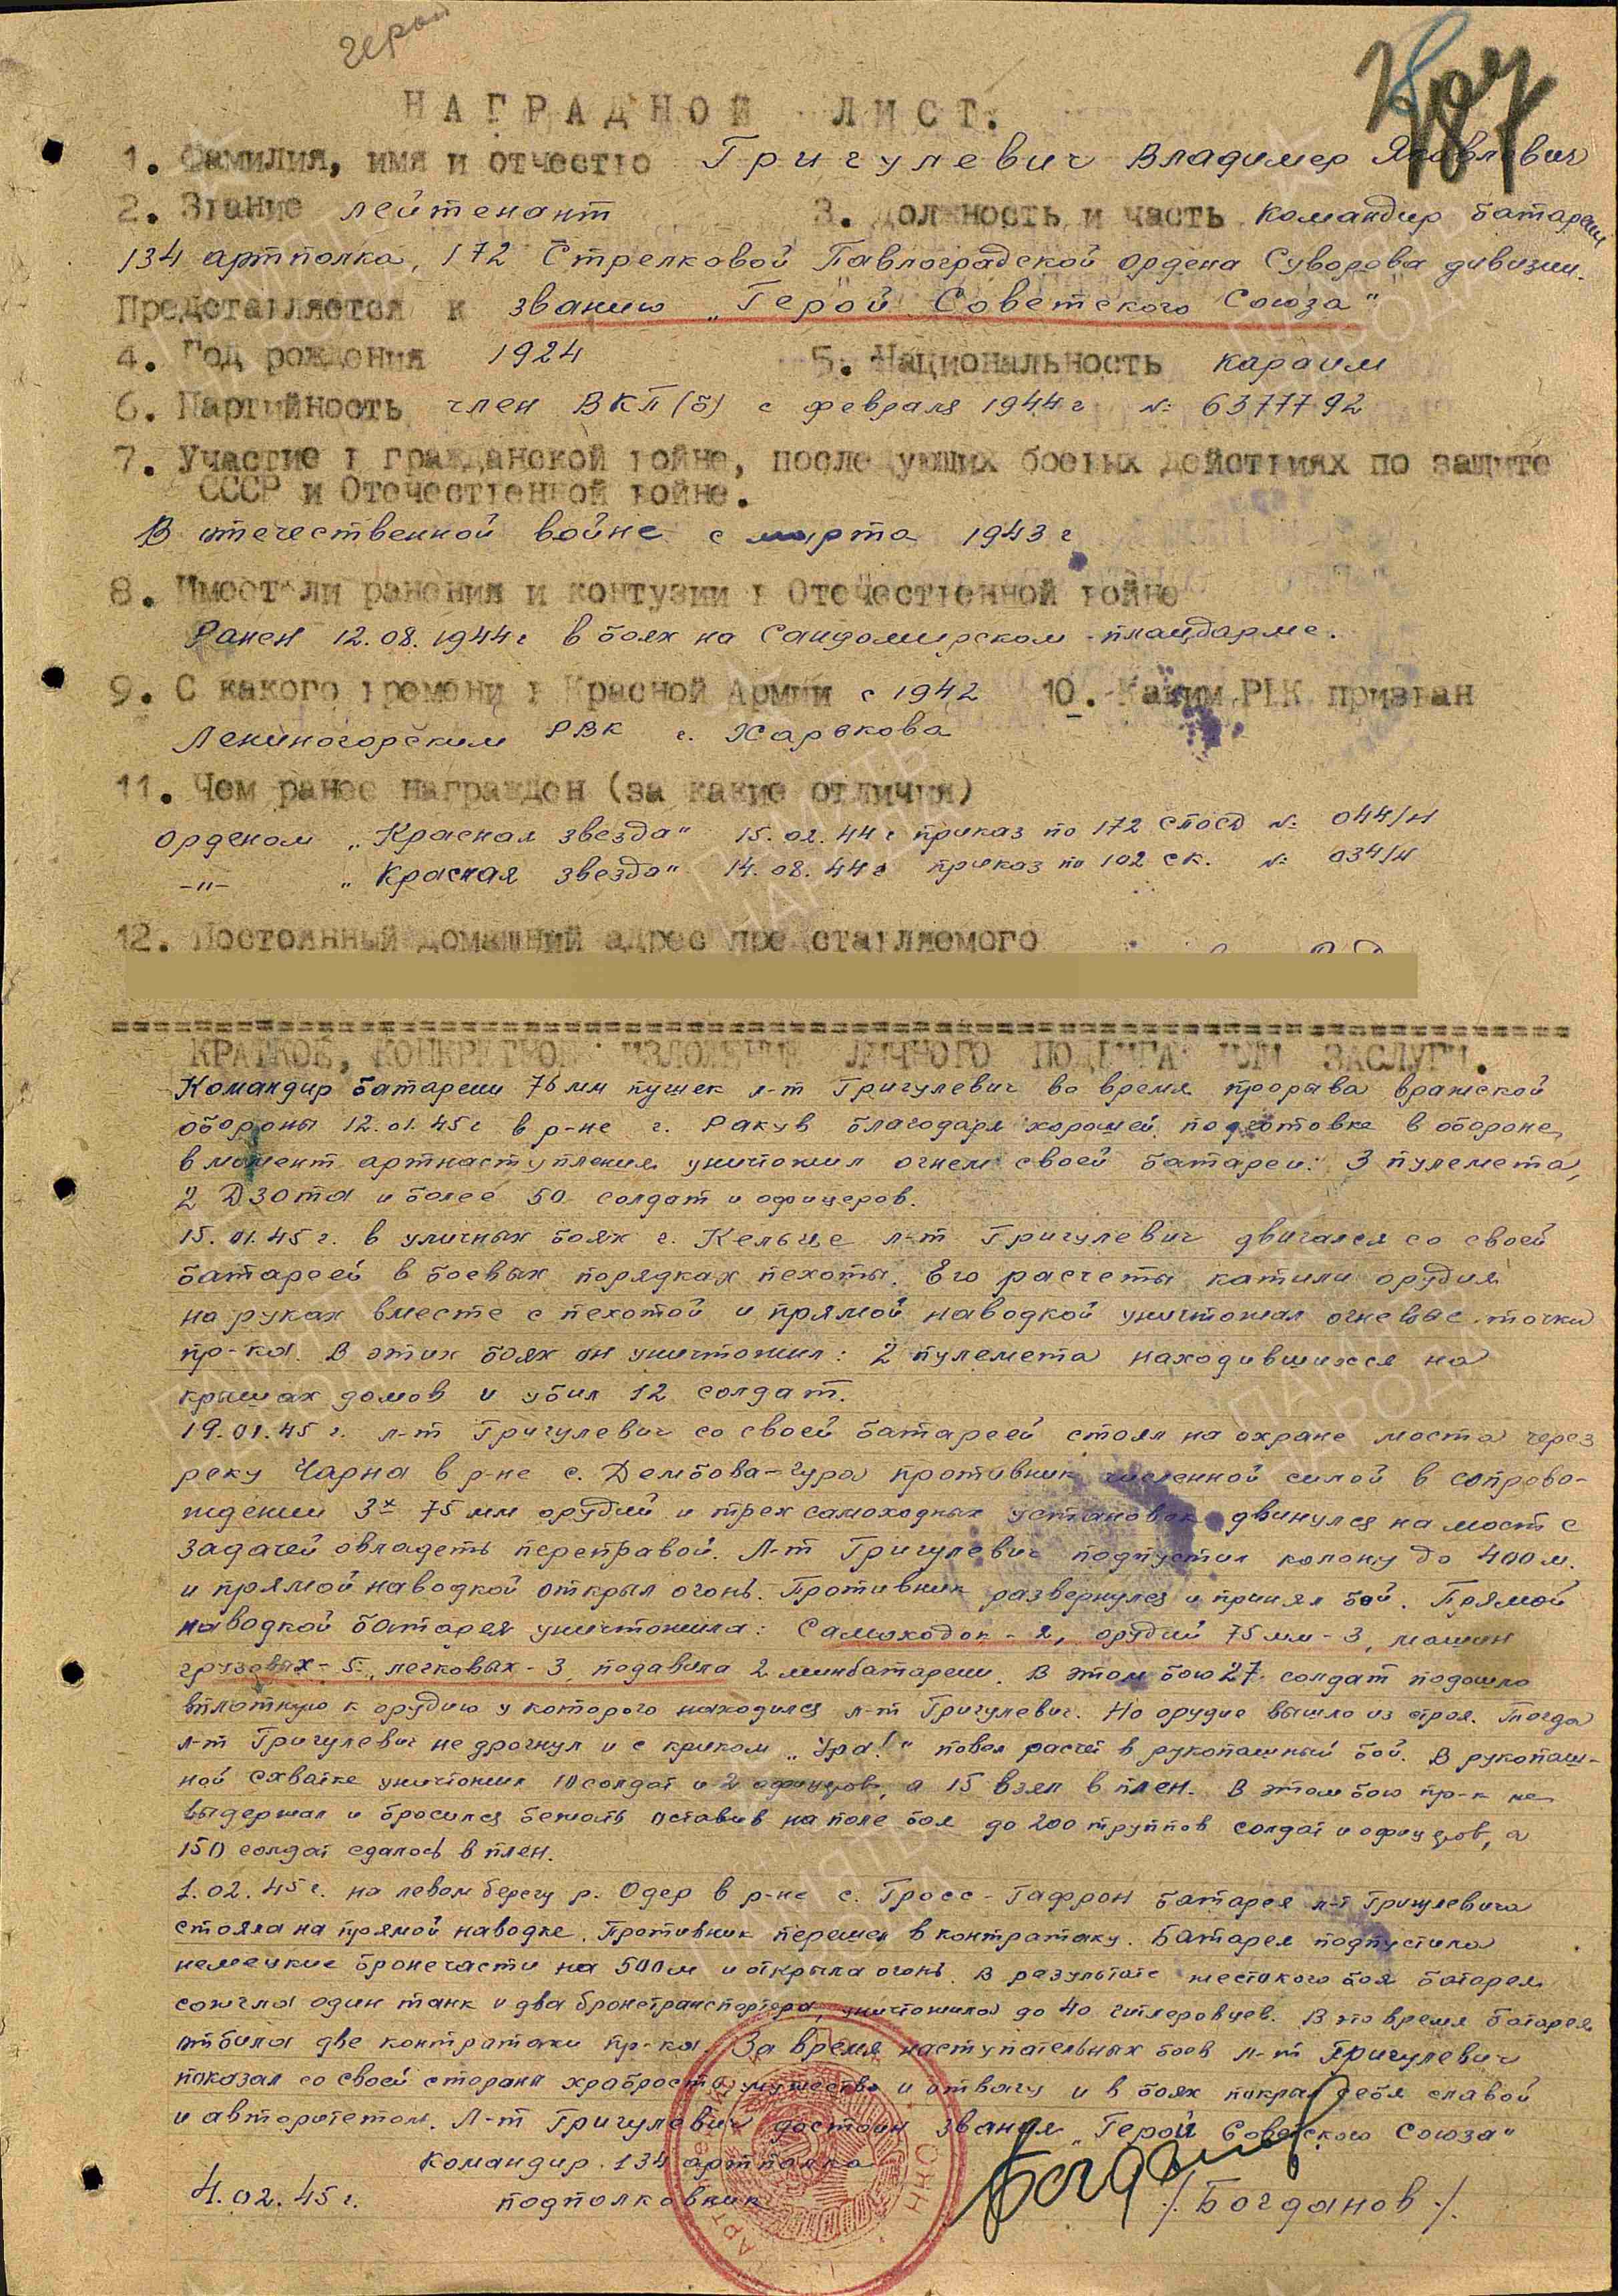 герой
НАГРАДНОЙ ЛИСТ.
1. Фамилия, имя и отчество Григулевич Владимер Яковлевич
2. Звание лейтенант 3. Должность и часть командир батареи
134 артполка, 172 Стрелковой Павлоградской ордена Суворова дивизии.
Представляется к званию „Герой Советского Союза"
4. Год рождения 1924 5. Национальность караим
6. Партийность член ВКП(б) с февраля 1944 г № 6377792
7. Участие в гражданской войне, последующих боевых действиях по защите
СССР и Отечественной войне.
В отечественной войне с марта 1943 г
8. Имеет ли ранения и контузии в Отечественной войне
Ранен 12.08.1944 г в боях на Сандомирском плацдарме.
9. С какого времени в Красной Армии с 1942 10. Каким РВК призван
Лениногорским РВК г. Харькова
11. Чем ранее награжден (за какие отличия)
Орденом „Красная звезда" 15.02.44 г приказ по 172 СПОСД № 044/н
-"- „Красная звезда" 14.08.44 г приказ по 102 ск. № 034/н
12. Постоянный домашний адрес представляемого
КРАТКОЕ, КОНКРЕТНОЕ ИЗЛОЖЕНИЕ ЛИЧНОГО ПОДВИГА ИЛИ ЗАСЛУГИ.
Командир батареи 76 мм пушек л-т Григулевич во время прорыва вражской
обороны 12.01.45 г в р-не г. Ракув благодаря хорошей подготовке в обороне,
в момент артнаступления уничтожил огнем своей батареи: 3 пулемета,
2 Дзота и более 50 солдат и офицеров.
15.01.45 г. в уличных боях г. Кельце л-т Григулевич двигался со своей
батареей в боевых порядках пехоты. Его расчеты катили орудия
на руках вместе с пехотой и прямой наводкой уничтожал огневые точки
пр-ка. В этих боях он уничтожил: 2 пулемета находившихся на
крышах домов и убил 12 солдат.
19.01.45 г. л-т Григулевич со своей батареей стоял на охране моста через
реку Чарна в р-не с. Дембова-гура противник численной силой в сопрово-
ждении 3х 75 мм орудий и трех самоходных установок двинулся на мост с
задачей овладеть переправой. Л-т Григулевич подпустил колону до 400 м.
и прямой наводкой открыл огонь. Противник развернулся и принял бой. Прямой
наводкой батарея уничтожила: Самоходок - 2, орудий 75 мм - 3, машин
грузовых - 5, легковых - 3, подавила 2 минбатареи. В этом бою 27 солдат подошло
вплотную к орудию у которого находился л-т Григулевич. Но орудие вышло из строя. Тогда
л-т Григулевич не дрогнул и с криком „Ура!" повел расчет в рукопашный бой. В рукопаш-
ной схватке уничтожил 10 солдат и 2 офицеров, а 15 взял в плен. В этом бою пр-к не
выдержал и бросился бежать оставив на поле боя до 200 труппов солдат и офицеров, а
150 солдат сдалось в плен.
1.02.45 г. на левом берегу р. Одер в р-не с. Гросс-Гафрон батарея л-т Григулевича
стояла на прямой наводке. Противник перешел в контратаку. Батарея подпустила
немецкие бронечасти на 500 м и открыла огонь. В результате жестокого боя батарея
сожгла один танк и два бронетранспортера, уничтожила до 40 гитлеровцев. В это время батарея
отбила две контратаки пр-ка. За время наступательных боев л-т Григулевич
показал со своей стороны храбрость, мужество и отвагу и в боях покрыл себя славой
и авторитетом. Л-т Григулевич достоин звания „Герой Советского Союза"
Командир 134 артполка
4.02.45 г. подполковник /Богданов/.